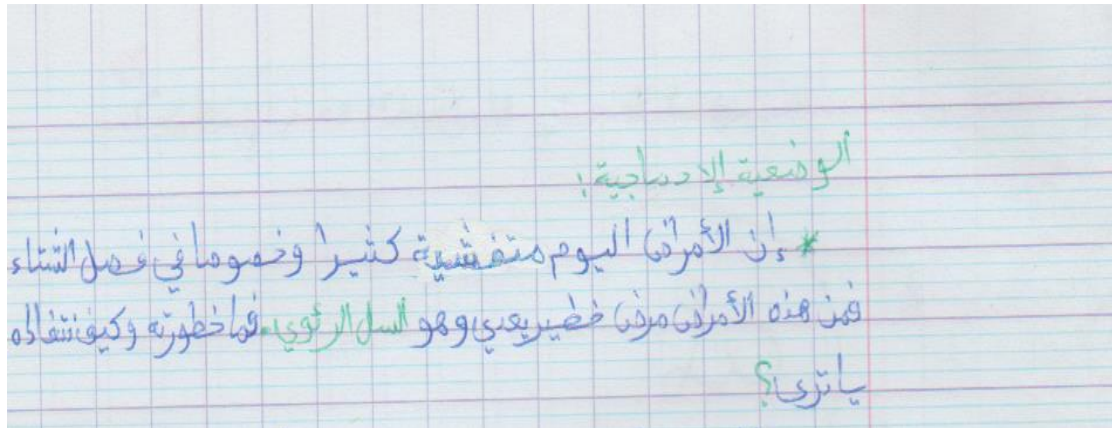 الوضعية الإدماجية:
* إن الأمراض اليوم متفشية كثيرا وخصوصا في فصل الشتاء
فمن هذه الأمراض مرض خطير يعدي وهو السل الرئوي. فما خطورته وكيف نتفاداه
يا ترى؟